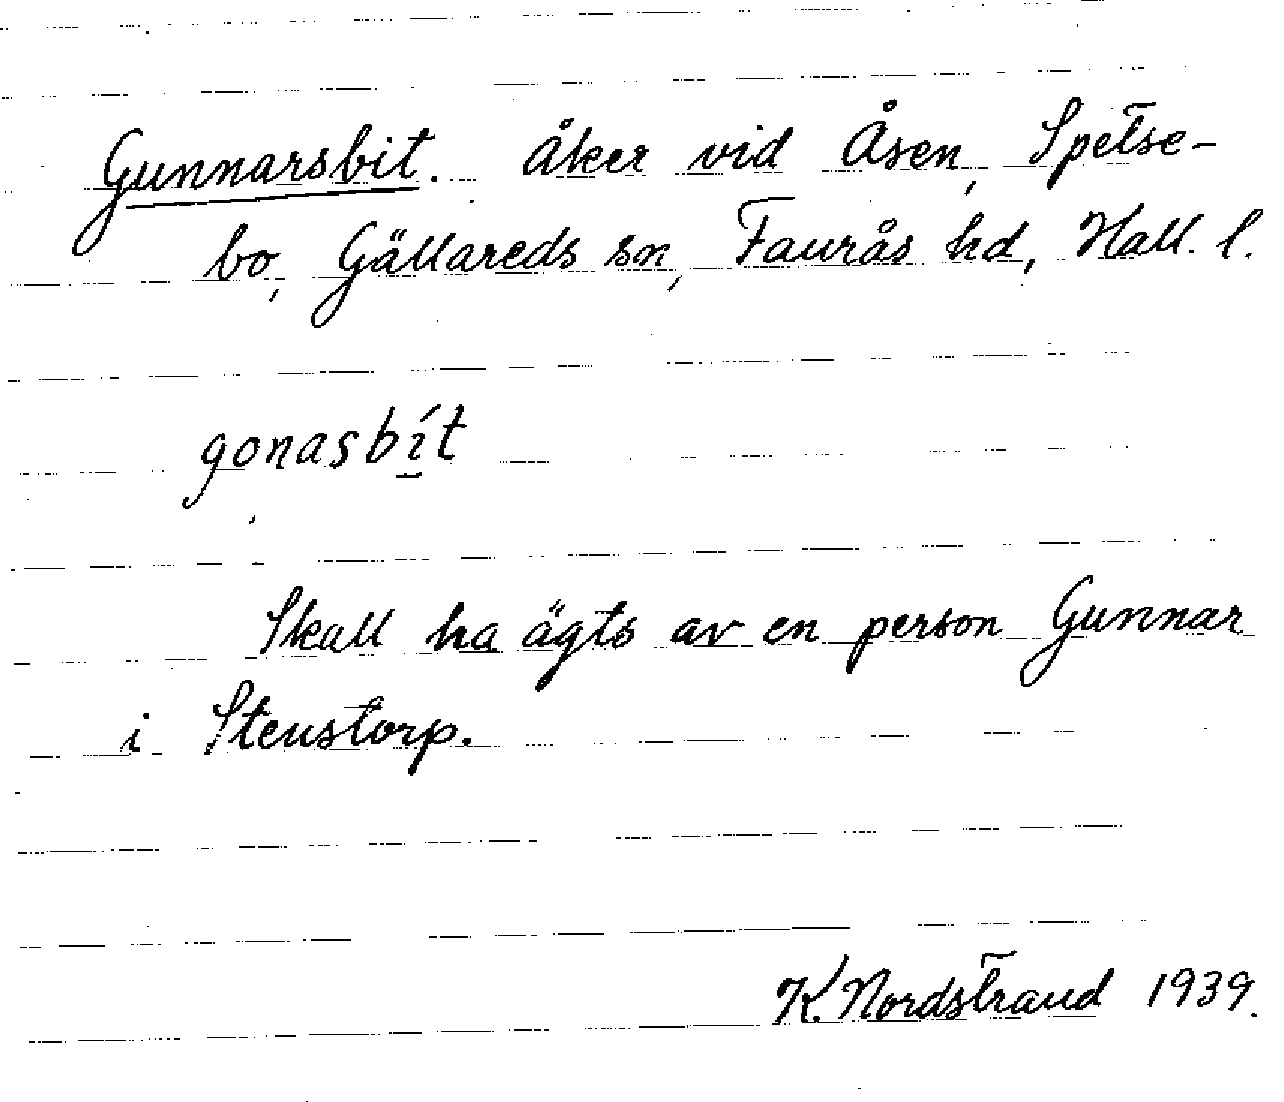 Gunnarsbit. Åker vid Åsen, Spetse-
bo, Gällareds sn, Faurås hd, Hall. l.
gonasbí̠t
Skall ha ägts av en person Gunnar
i Stenstorp.
K. Nordstrand 1939.